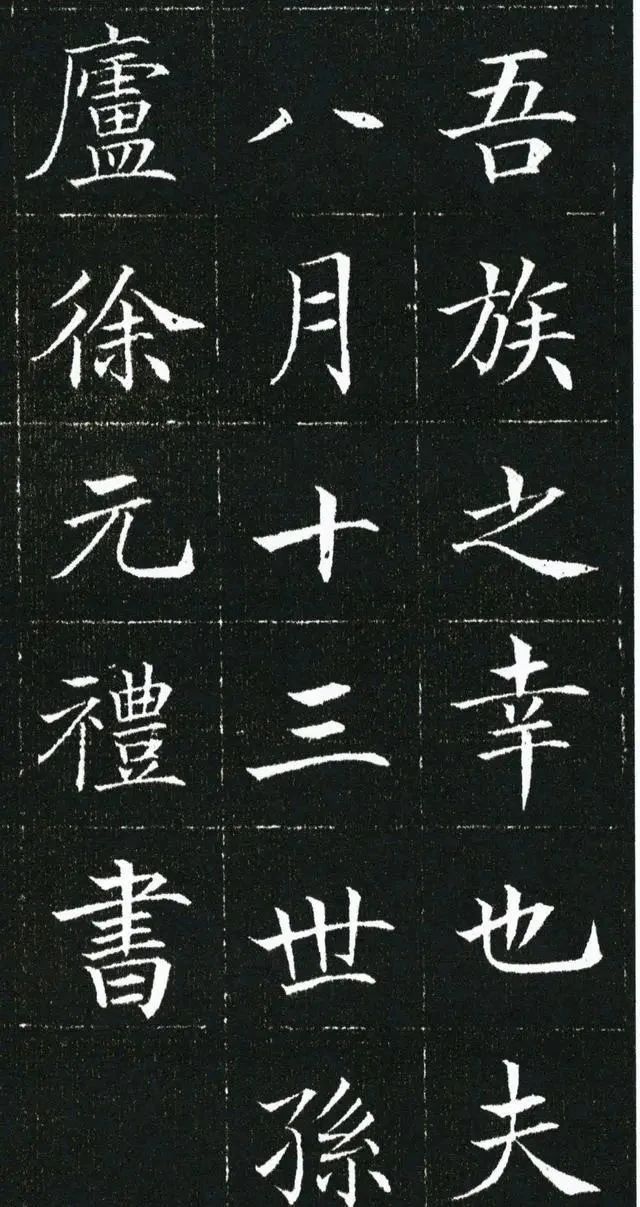 吾族之幸也夫
八月十三世孫
廬徐元禮書